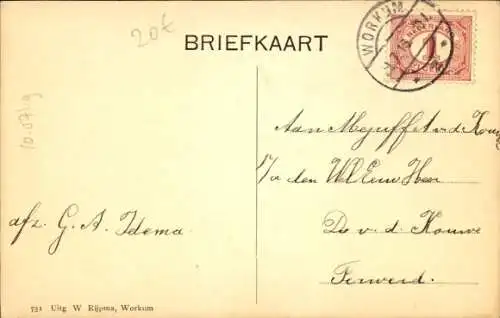 20€
BRIEFKAART
WORKUM
1
10.07/9
Aan Mejuffr. A. v. d. Kouwe
p/a den Wel Eerw Heer
Ds v. d. Kouwe
Ferwerd.
afz. G. A. Idema
731 Uitg W Rijpma, Workum